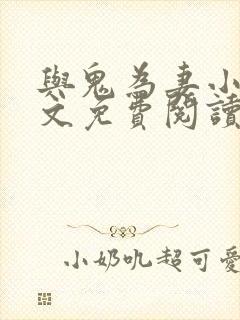 與鬼為妻小
文免費閱讀
小奶吼超可愛